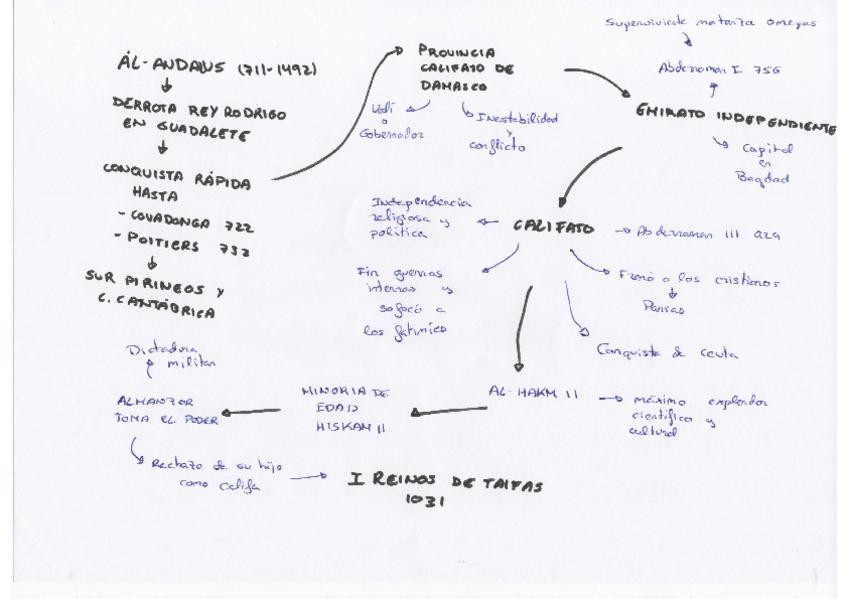 ÁL-ANDALUS (711-1492)
DERROTA REY RODRIGO
EN GUADALETE
CONQUISTA RÁPIDA
HASTA
- COVADONGA 722
- POITIERS 732
SUR PIRINEOS Y
C. CANTÁBRICA
PROVINCIA
CALIFATO DE
DAMASCO
Valí
o
Gobernador
Inestabilidad
y
conflicto
Superviviente matanza omeyas
Abderraman I 756
EMIRATO INDEPENDIENTE
Capital
en
Bagdad
CALIFATO
Independencia
religiosa y
política
Abderraman III 929
Fin guerras
internas y
sofocó a
los fatimíes
Frenó a los cristianos
Parias
Conquista de Ceuta
AL-HAKM II
máximo explendor
científico y
cultural
MINORIA DE
EDAD
HISHAM II
ALMANZOR
TOMA EL PODER
Dictadura
militar
Rechazo de su hijo
como califa
I REINOS DE TAIFAS
1031